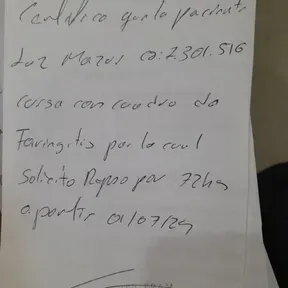 Certifico que la paciente
Luz Mazur CI: 2301.516
cursa con cuadro de
Faringitis por lo cual
Solicito Reposo por 72hs
a partir 01/07/24